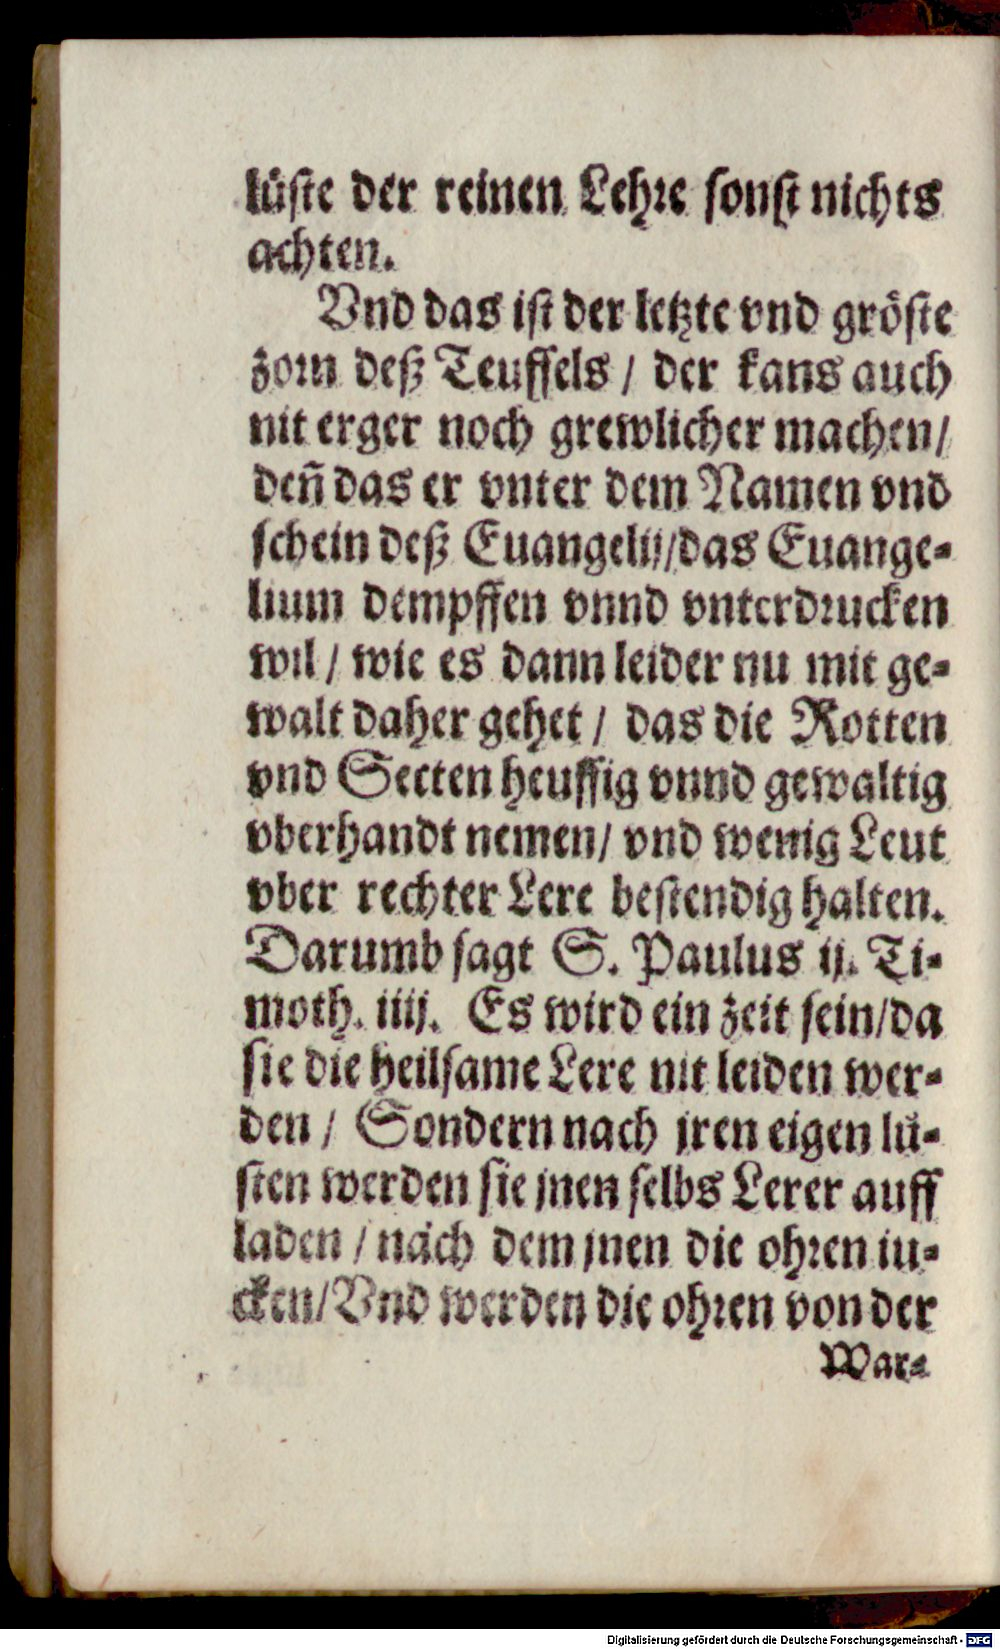 lüste der reinen Lehre sonst nichts
achten.
Vnd das ist der letzte vnd gröste
zorn deß Teuffels / der kans auch
nit erger noch grewlicher machen/
deñ das er vnter dem Namen vnd
schein deß Euangelij/das Euange-
lium dempffen vnnd vnterdrucken
wil / wie es dann leider nu mit ge-
walt daher gehet / das die Rotten
vnd Secten heuffig vnnd gewaltig
vberhandt nemen/ vnd wenig Leut
vber rechter Lere bestendig halten.
Darumb sagt S. Paulus ij. Ti-
moth. iiij. Es wird ein zeit sein/da
sie die heilsame Lere nit leiden wer-
den / Sondern nach jren eigen lü-
sten werden sie jnen selbs Lerer auff
laden / nach dem jnen die ohren iu-
cken/Vnd werden die ohren von der
War-
Digitalisierung gefördert durch die Deutsche Forschungsgemeinschaft - DFG